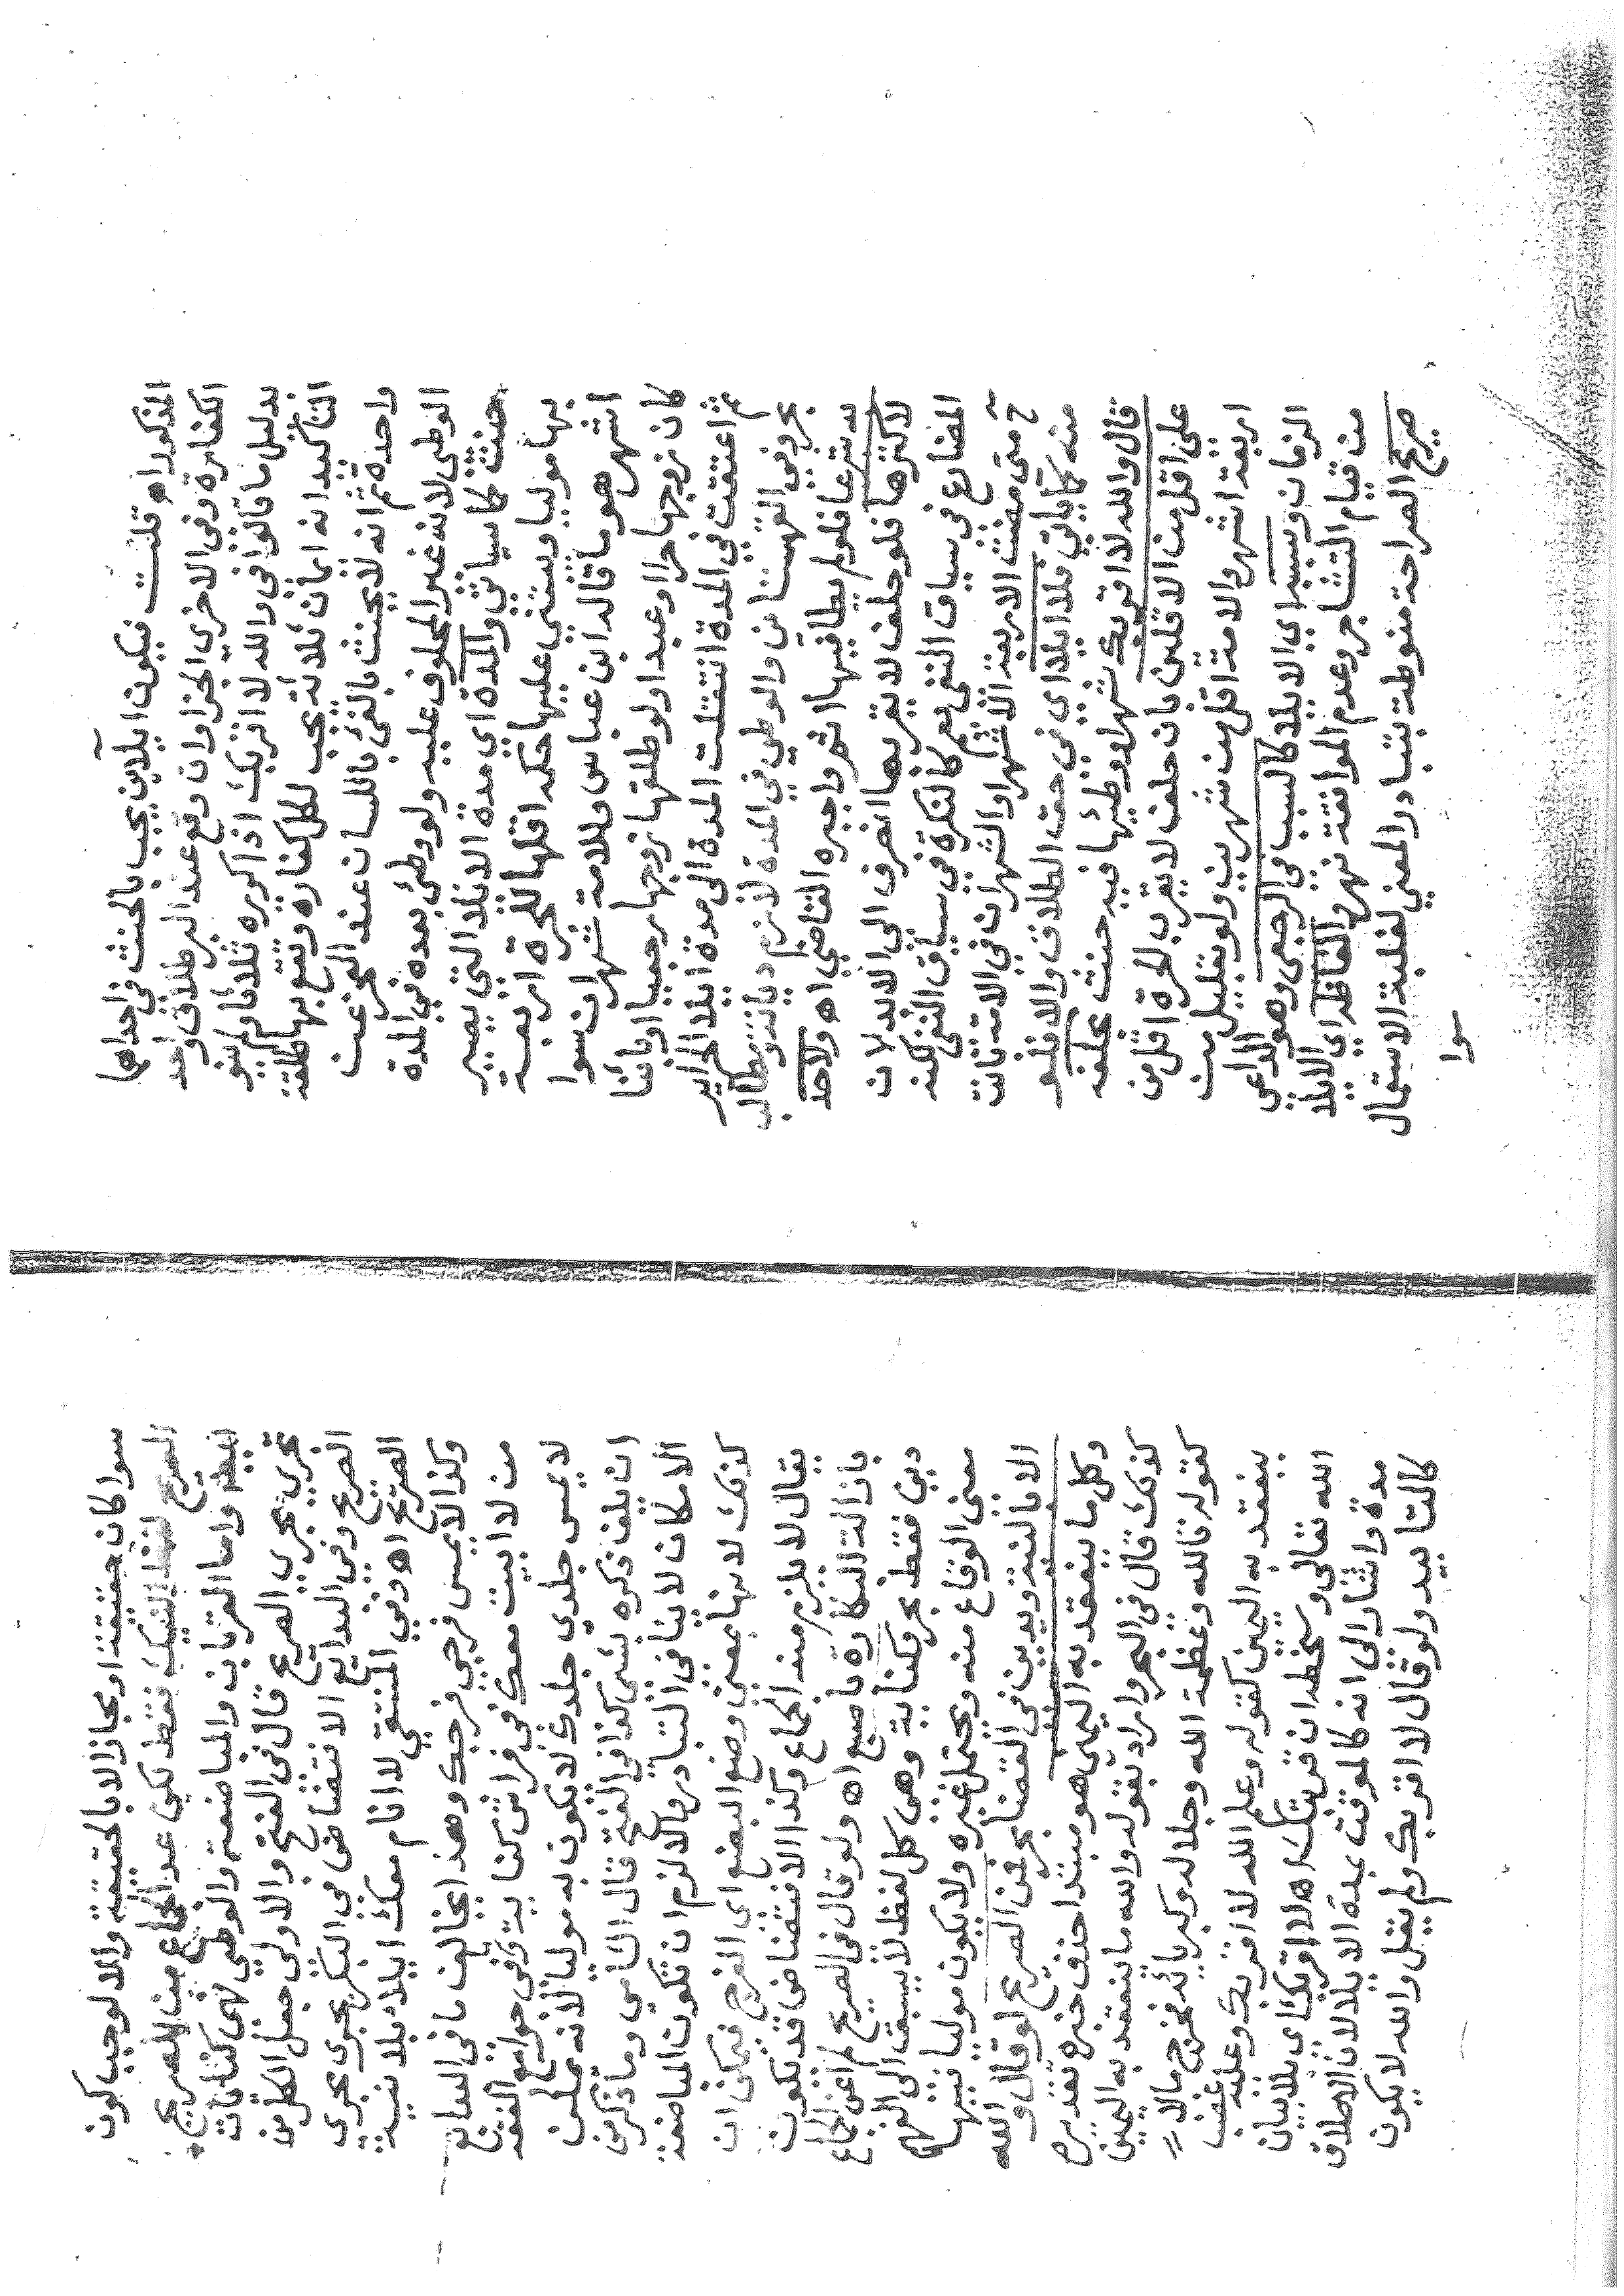 المذكور اه قلت فيكون ايلاين يجب بالحنث في احداها
الكفارة وفي الاخري الجزا وان وقع عند البر طلاق واحد
بدليل ما قالوا في والله لا اقربك اذا كرره ثلاثا ولم ينو
التاكيد انه ايمان ثلاثة يجب لكل كفارة وتقع بها طلقة
واحدة ثم انه لا يحنث بالفئ باللسان عند العجز عن
الوطئ لانه غير المحلوف عليه ولو وطئ بعده في المدة
حنث كما سياتي والمدة اي مدة الايلا التي يصير
بها موليا ويبتني عليها حكمه اقلها للحرة اربعة
اشهر هو ما قاله ابن عباس وللامة شهران سوا
كان زوجها حرا او عبدا ولو طلقها زوجها رجعيا او بائنا
ثم اعتقت في المدة انتقلت المدة الى مدة ايلا الحراير
بحر وفي القهستاني والوطي في المدة لازم ديانة ومطالب
به شرعا فلو لم يطا فيها اثم واجبره القاضي اه ولا حد
لاكثرها فلو حلف لا يقربها انصرف الى الابد لان
المضارع في سياق النفي يعم كالنكرة في سياق النفي لكنه
ح متى مضت الاربعة الاشهر او الشهران في الامة بانت
منه كما ياتي فلا ايلا اي في حق الطلاق والا فلو
قال والله لا اقربك شهرا ووطئها فيه حنث بحلفه
على اقل من الاقلين بان حلف لا يقرب الحرة اقل من
اربعة اشهر والامة اقل من شهرين ولو بقليل من
الزمان وسببه اي الايلا كالسبب في الرجعي وهو الداعي
من قيام التشاجر وعدم الموافقة نهر والفاظه اي الايلا
صريح الصراحة منوطة بتبادر المعني لغلبة الاستعمال
سوا
سوا كان حقيقة او مجازا لا بالحقيقة والا لوجب كون
الصريح لفظ النيك فقط لكن عد الجماع من الصريح
ايضا واما القربان والمباضعة والوطي فهي كنايات
تجري مجري الصريح قال في الفتح والاولي جعل الكل من
الصريح وفي البدايع الافتضاض في البكر يجري مجري
الصريح اه وفي المنتقي لا انام معك ايلا بلا نية
وكذا لا يمس فرجي فرجك وهذا يخالف ما في البدايع
من لا ابيت معك في فراش كناية وفي جوامع الفقه
لا يمس جلدي جلدك لا يكون به موليا لانه يمكن
ان يلف ذكره بشي كذا في الفتح قال الشامي وما ذكر من
الامكان لا ينافي التبادر والا لزم ان تكون المباضعة
كذلك لانها بمعني وضع البضع اي الفرج فيمكن ان
يقال لا يلزم منه الجماع وكذا الافتضاض قد يكون
بازالة البكارة باصبع اه ولو قال في الصريح لم اعن الجماع
دين فقط بحر وكناية وهي كل لفظ لا يسبق الى الفهم
معني الوقاع منه ويحتمل غيره ولا يكون موليا فيها
الا بالنية ويدين في القضا بحر فمن الصريح لو قال والله
وكل ما ينعقد به اليمين هو مبتدا حذف خبره تقديره
كذلك قال في البحر واراد بقوله والله ما تنعقد به اليمين
كقوله تالله وعظمة الله وجلاله وكبريائه فخرج ما لا
ينعقد به اليمين كقوله وعلم الله لا اقربك وعليه غضب
الله تعالى وسخطه ان قربتك اه لا اقربك اي بلا بيان
مدة واشار الى انه كالموقت بمدة الايلا لان الاطلاق
كالتابيد ولو قال لا اقربك ولم يقل والله لا يكون